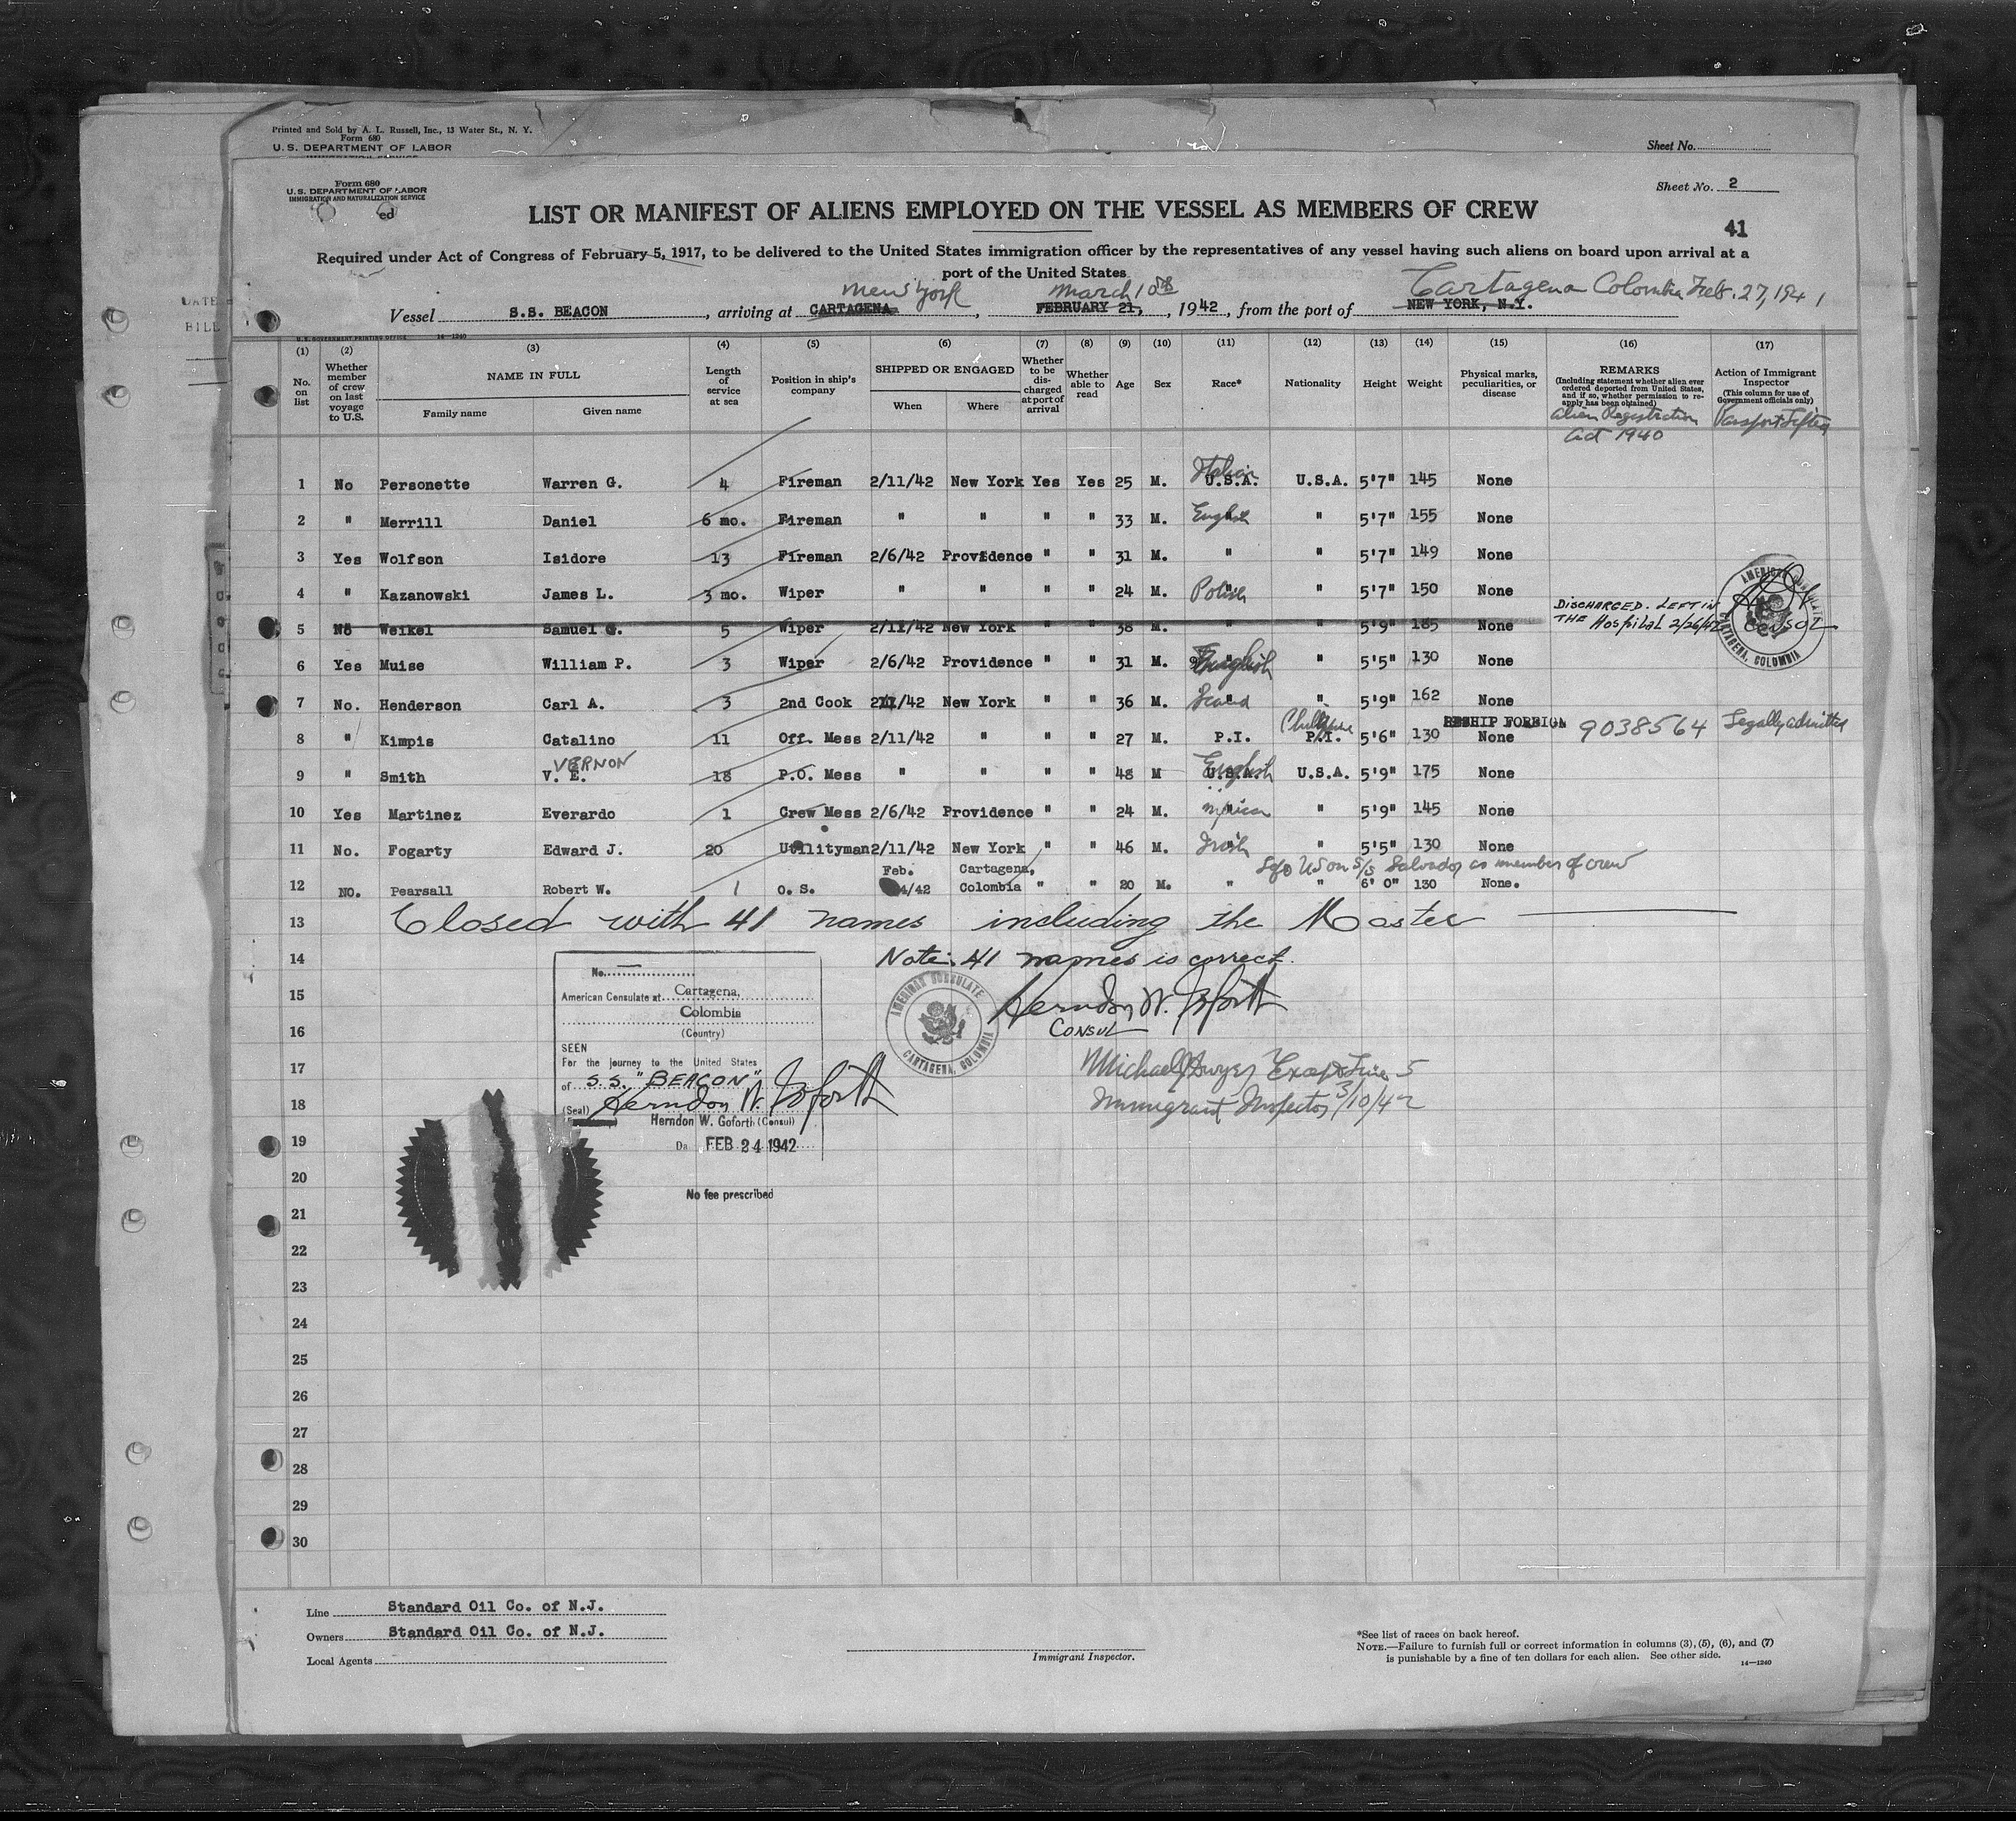 Printed and Sold by A. L. Russell, Inc., 13 Water St., N. Y.
Form 680
U. S. DEPARTMENT OF LABOR
Sheet No.
Form 680
U. S. DEPARTMENT OF LABOR
IMMIGRATION AND NATURALIZATION SERVICE
ed
Sheet No. 2
LIST OR MANIFEST OF ALIENS EMPLOYED ON THE VESSEL AS MEMBERS OF CREW
41
Required under Act of Congress of February 5, 1917, to be delivered to the United States immigration officer by the representatives of any vessel having such aliens on board upon arrival at a
port of the United States
New York March 10th Cartagena Colombia Feb. 27, 1941
Vessel S.S. BEACON, arriving at CARTAGENA, FEBRUARY 21, 1942, from the port of NEW YORK, N.Y.
U. S. GOVERNMENT PRINTING OFFICE 14—1240
(1) (2) (3) (4) (5) (6) (7) (8) (9) (10) (11) (12) (13) (14) (15) (16) (17)
No. on list
Whether member of crew on last voyage to U.S.
NAME IN FULL
Family name Given name
Length of service at sea
Position in ship's company
SHIPPED OR ENGAGED
When Where
Whether to be discharged at port of arrival
Whether able to read
Age Sex Race* Nationality Height Weight
Physical marks, peculiarities, or disease
REMARKS
(Including statement whether alien ever ordered deported from United States, and if so, whether permission to reapply has been obtained)
Alien Registration Act 1940
Action of Immigrant Inspector
(This column for use of Government officials only)
Passport Lifted
1 No Personette Warren G. 4 Fireman 2/11/42 New York Yes Yes 25 M. Italian U.S.A. U.S.A. 5'7" 145 None
2 " Merrill Daniel 6 mo. Fireman " " " " 33 M. English " 5'7" 155 None
3 Yes Wolfson Isidore 13 Fireman 2/6/42 Providence " " 31 M. " " 5'7" 149 None
4 " Kazanowski James L. 3 mo. Wiper " " " " 24 M. Polish " 5'7" 150 None
5 No Weikel Samuel G. 5 Wiper 2/11/42 New York " " 38 M. " " 5'9" 185 None DISCHARGED. LEFT IN THE HOSPITAL 2/26/42 CONSUL
AMERICAN CONSULATE CARTAGENA, COLOMBIA
6 Yes Muise William P. 3 Wiper 2/6/42 Providence " " 31 M. English " 5'5" 130 None
7 No. Henderson Carl A. 3 2nd Cook 2/11/42 New York " " 36 M. Scand " 5'9" 162 None
8 " Kimpis Catalino 11 Off. Mess 2/11/42 " " " 27 M. P.I. P.I. 5'6" 130 RESHIP FOREIGN None 9038564 Legally admitted
9 " Smith VERNON V. E. 18 P.O. Mess " " " " 48 M English U.S.A. U.S.A. 5'9" 175 None
10 Yes Martinez Everardo 1 Crew Mess 2/6/42 Providence " " 24 M. " 5'9" 145 None
11 No. Fogarty Edward J. 20 Utilityman 2/11/42 New York " " 46 M. Irish " 5'5" 130 None
US on S/S Salvador as member of crew
12 NO. Pearsall Robert W. 1 O. S. Feb. 4/42 Cartagena, Colombia " " 20 M. " " 6' 0" 130 None.
13 Closed with 41 names including the Master
14 Note: 41 names is correct.
No.
15 American Consulate at Cartagena,
Colombia
AMERICAN CONSULATE CARTAGENA, COLOMBIA
Herndon W. Goforth
16 (Country) CONSUL
SEEN
17 For the journey to the United States
of S.S. "BEACON"
Michael J Dwyer Except Line 5
18 (Seal) Herndon W. Goforth
Immigrant Inspector 3/10/42
Herndon W. Goforth (Consul)
19 Da FEB 24 1942
20 No fee prescribed
21
22
23
24
25
26
27
28
29
30
Line Standard Oil Co. of N.J.
Owners Standard Oil Co. of N.J.
Local Agents
Immigrant Inspector.
*See list of races on back hereof.
NOTE.—Failure to furnish full or correct information in columns (3), (5), (6), and (7)
is punishable by a fine of ten dollars for each alien. See other side.
14—1240